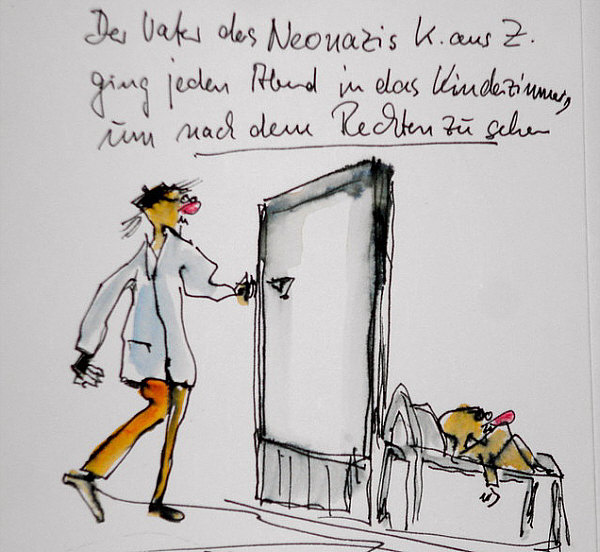 Der Vater des Neonazis K. aus Z.
ging jeden Abend in das Kinderzimmer,
um nach dem Rechten zu sehen